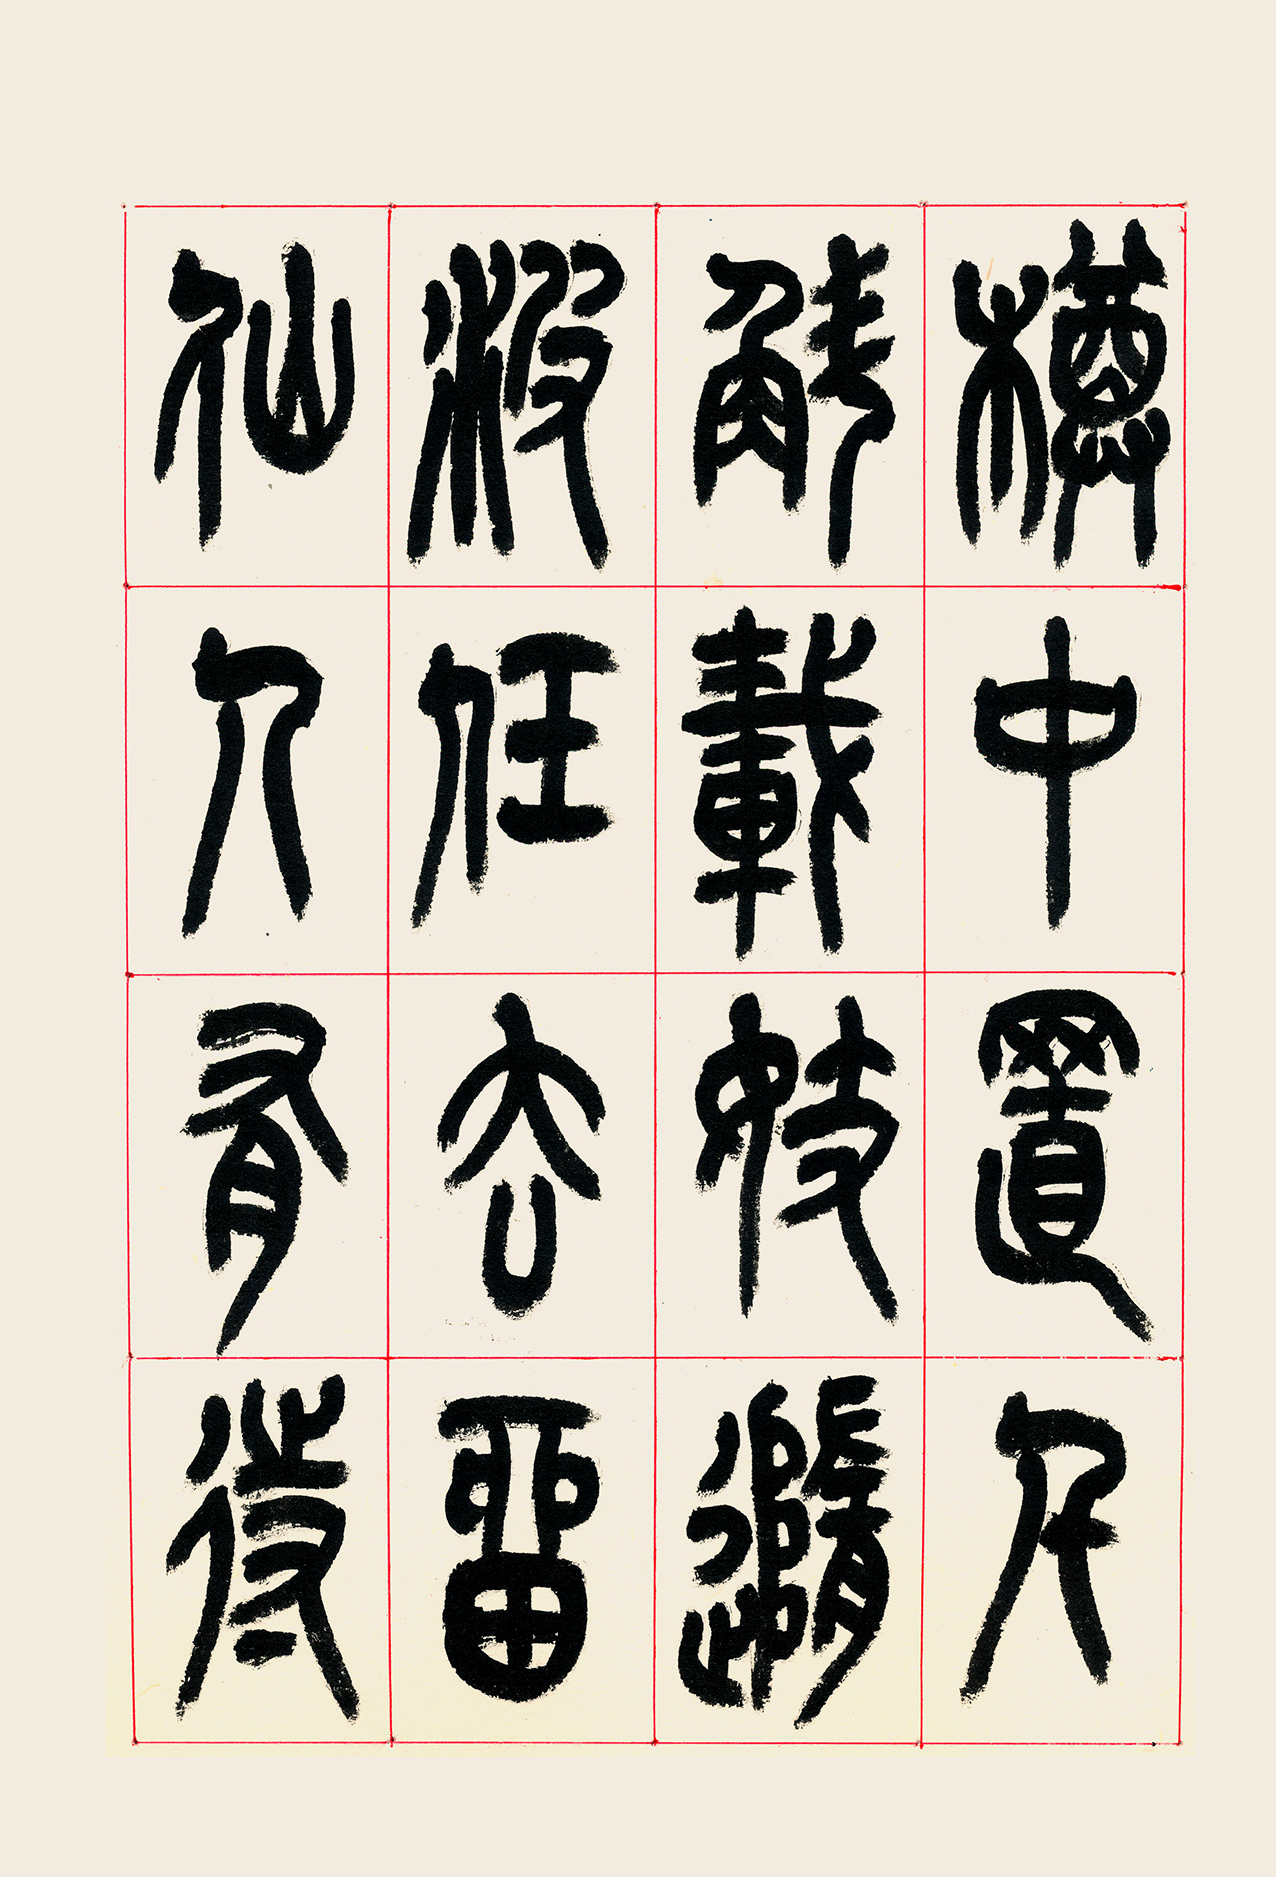 樽中置千
斛載妓隨
波任去留
仙人有待